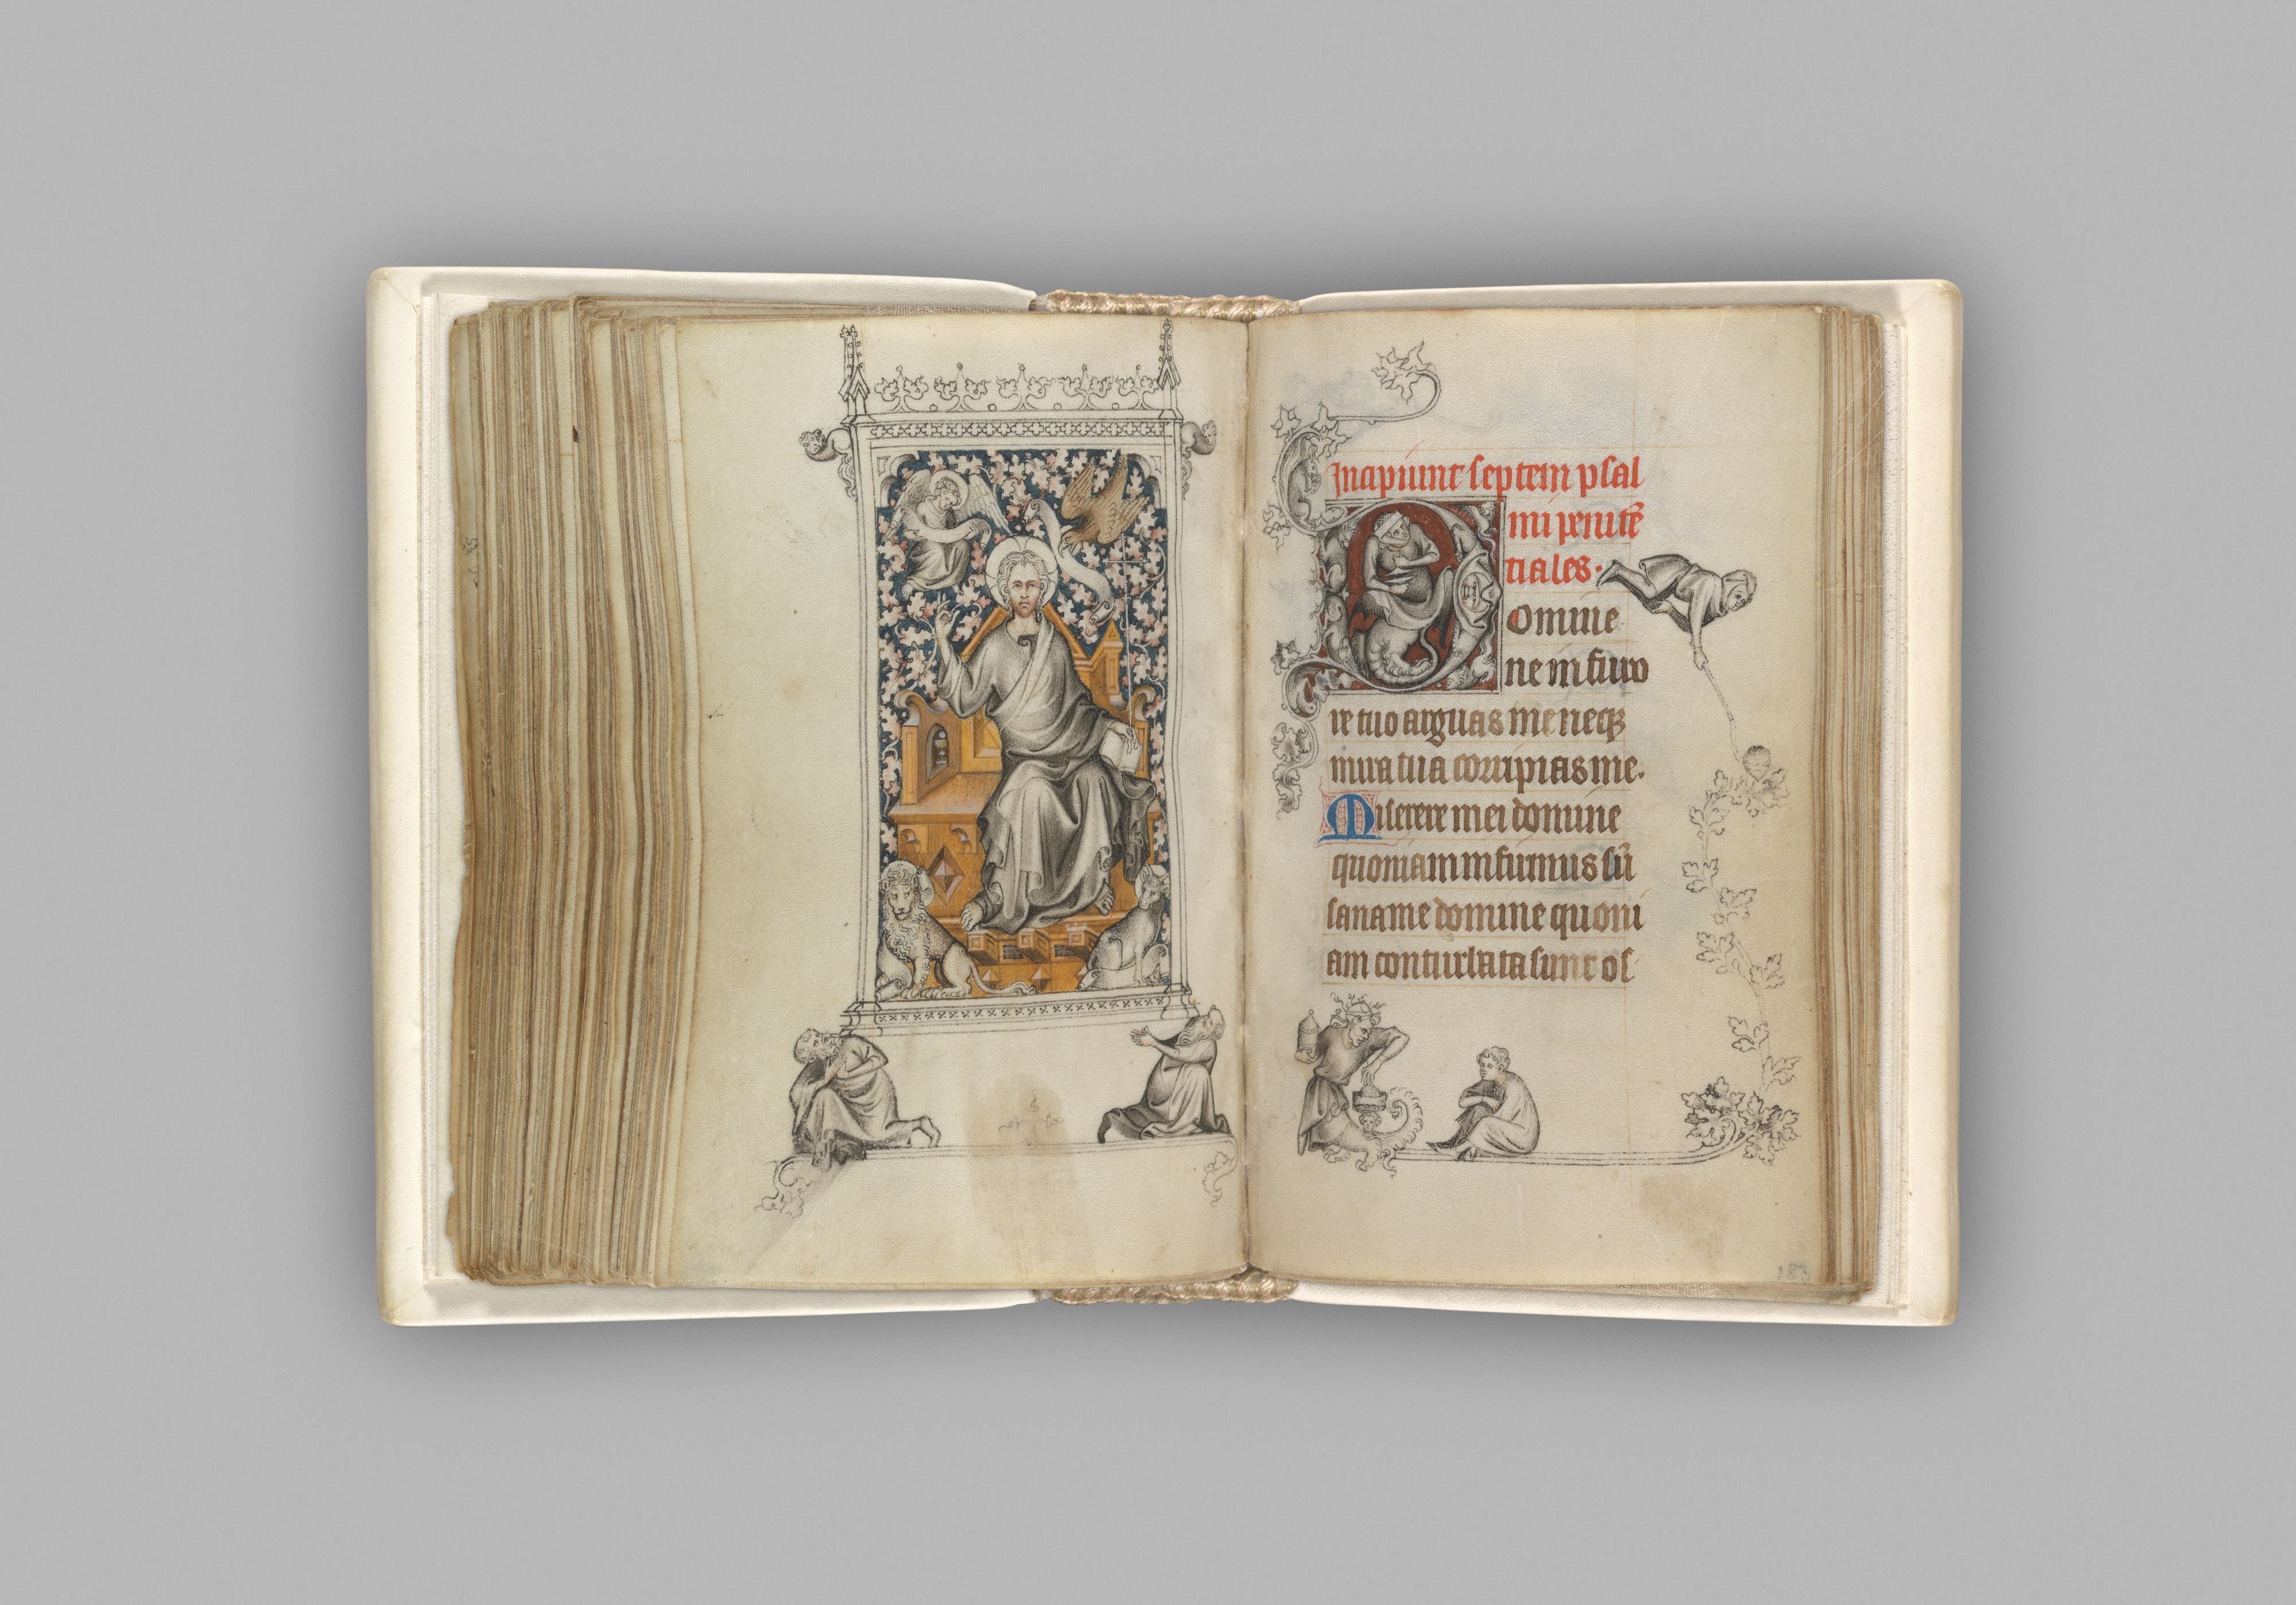 Incipiunt septem psal
mi penitē
tiales.
Domine
ne in furo
re tuo arguas me neq̄
in ira tua corripias me.
Miserere mei domine
quoniam infirmus sū
sana me domine quoni
am conturbata sunt os
183